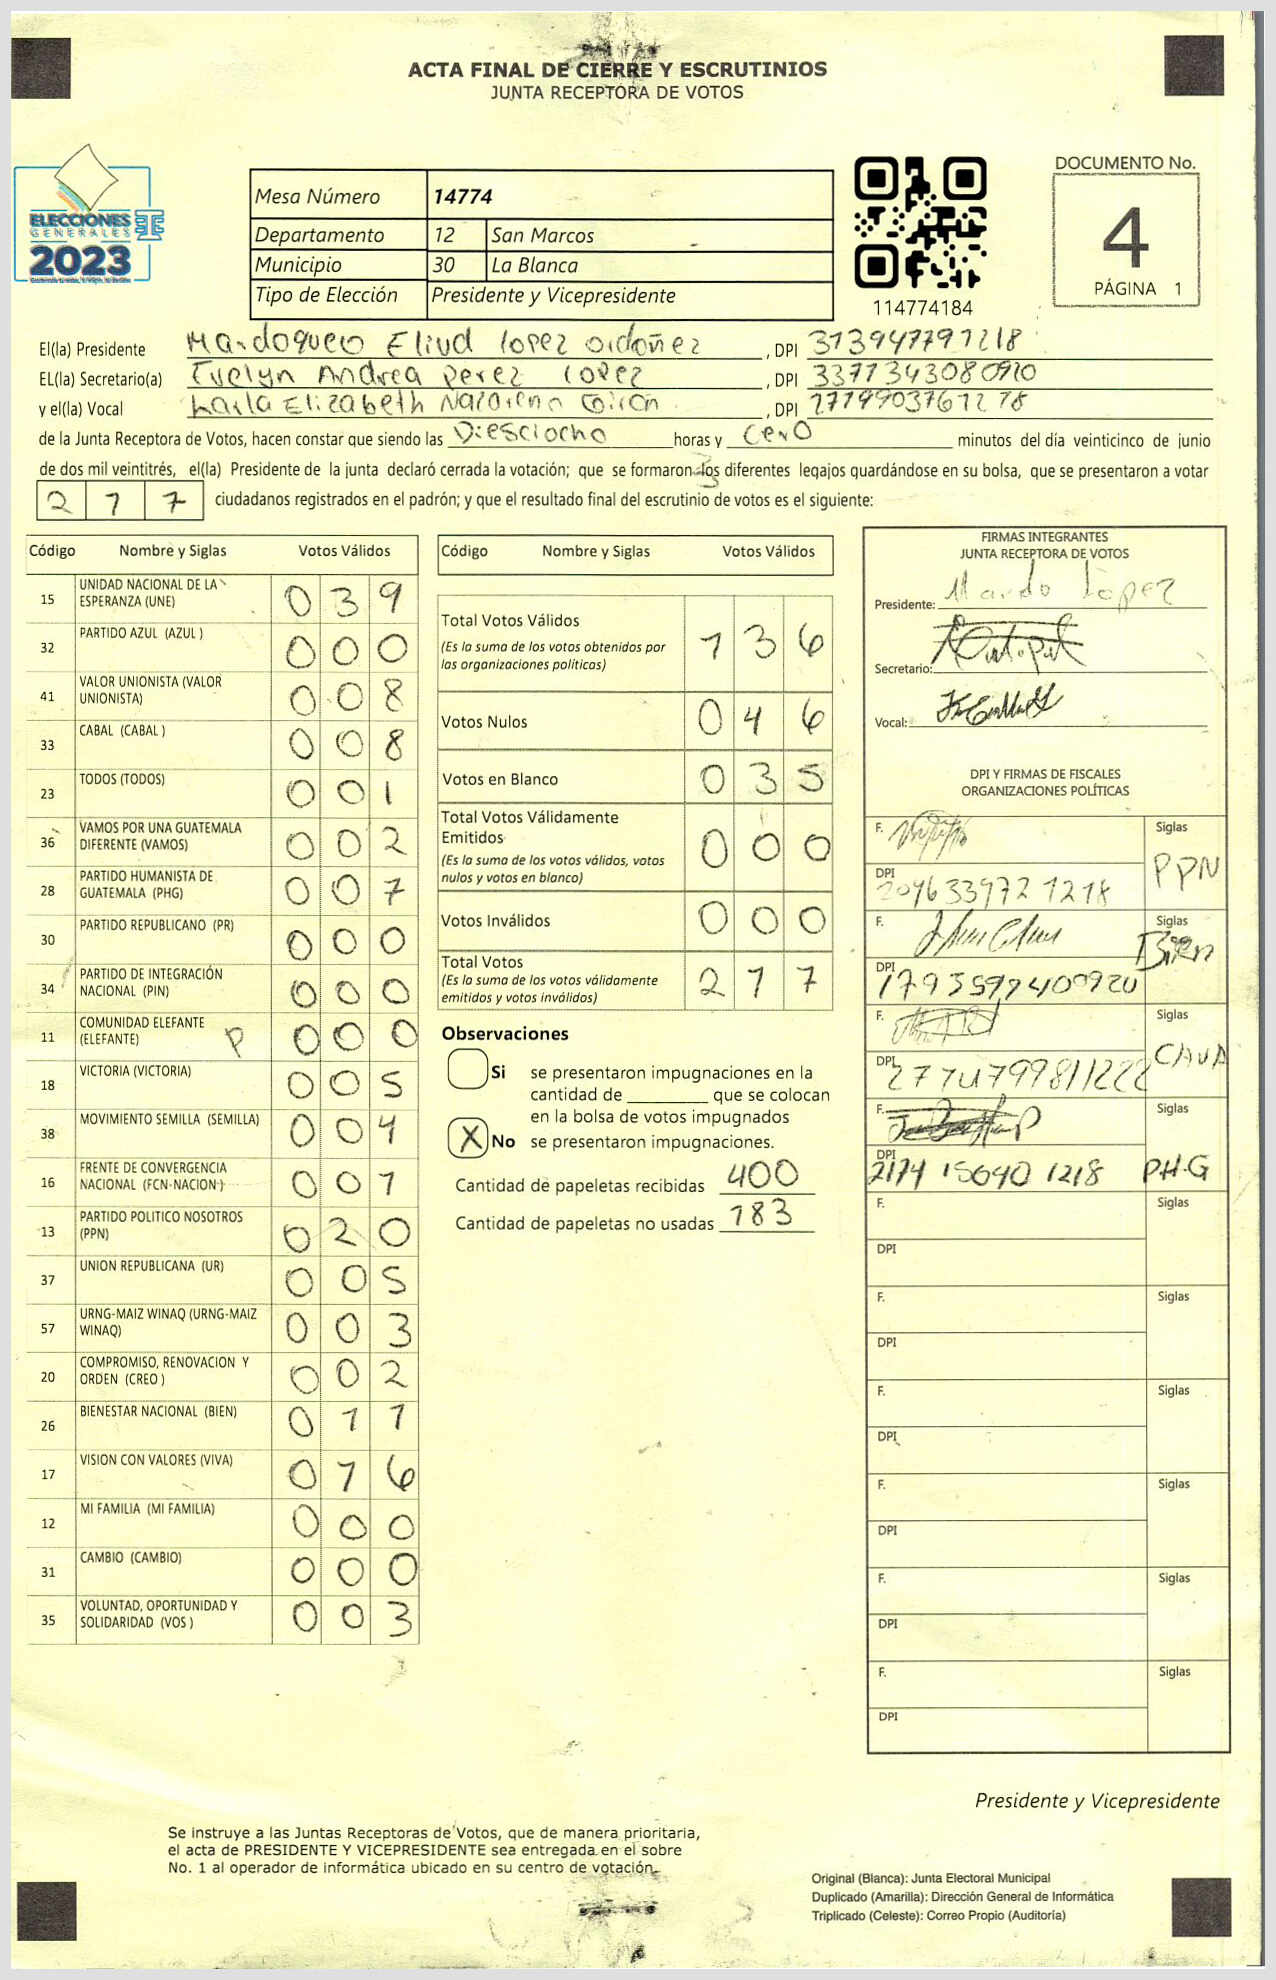 ACTA FINAL DE CIERRE Y ESCRUTINIOS
JUNTA RECEPTORA DE VOTOS
ELECCIONES
GENERALES
2023
Mesa Número 14774
Departamento 12 San Marcos
Municipio 30 La Blanca
Tipo de Elección Presidente y Vicepresidente
114774184
DOCUMENTO No.
4
PÁGINA 1
El(la) Presidente Mardoqueo Eliud lopez ordoñez , DPI
EL(la) Secretario(a) Evelyn Andrea perez lopez , DPI
y el(la) Vocal Karla Elizabeth , DPI
de la Junta Receptora de Votos, hacen constar que siendo las Diesciocho horas y cero minutos del día veinticinco de junio
de dos mil veintitrés, el(la) Presidente de la junta declaró cerrada la votación; que se formaron los diferentes legajos guardándose en su bolsa, que se presentaron a votar
2 1 7 ciudadanos registrados en el padrón; y que el resultado final del escrutinio de votos es el siguiente:
Código Nombre y Siglas Votos Válidos
15 UNIDAD NACIONAL DE LA
ESPERANZA (UNE) 0 3 9
32 PARTIDO AZUL (AZUL ) 0 0 0
41 VALOR UNIONISTA (VALOR
UNIONISTA) 0 0 8
33 CABAL (CABAL ) 0 0 8
23 TODOS (TODOS) 0 0 1
36 VAMOS POR UNA GUATEMALA
DIFERENTE (VAMOS) 0 0 2
28 PARTIDO HUMANISTA DE
GUATEMALA (PHG) 0 0 7
30 PARTIDO REPUBLICANO (PR) 0 0 0
34 PARTIDO DE INTEGRACIÓN
NACIONAL (PIN) 0 0 0
11 COMUNIDAD ELEFANTE
(ELEFANTE) P 0 0 0
18 VICTORIA (VICTORIA) 0 0 5
38 MOVIMIENTO SEMILLA (SEMILLA) 0 0 4
16 FRENTE DE CONVERGENCIA
NACIONAL (FCN-NACION ) 0 0 1
13 PARTIDO POLITICO NOSOTROS
(PPN) 0 2 0
37 UNION REPUBLICANA (UR) 0 0 5
57 URNG-MAIZ WINAQ (URNG-MAIZ
WINAQ) 0 0 3
20 COMPROMISO, RENOVACION Y
ORDEN (CREO ) 0 0 2
26 BIENESTAR NACIONAL (BIEN) 0 1 1
17 VISION CON VALORES (VIVA) 0 1 6
12 MI FAMILIA (MI FAMILIA) 0 0 0
31 CAMBIO (CAMBIO) 0 0 0
35 VOLUNTAD, OPORTUNIDAD Y
SOLIDARIDAD (VOS ) 0 0 3
Código Nombre y Siglas Votos Válidos
Total Votos Válidos 1 3 6
(Es la suma de los votos obtenidos por
las organizaciones políticas)
Votos Nulos 0 4 6
Votos en Blanco 0 3 5
Total Votos Válidamente
Emitidos 0 0 0
(Es la suma de los votos válidos, votos
nulos y votos en blanco)
Votos Inválidos 0 0 0
Total Votos 2 1 7
(Es la suma de los votos válidamente
emitidos y votos inválidos)
Observaciones
Si se presentaron impugnaciones en la
cantidad de ________ que se colocan
en la bolsa de votos impugnados
X No se presentaron impugnaciones.
Cantidad de papeletas recibidas 400
Cantidad de papeletas no usadas 183
FIRMAS INTEGRANTES
JUNTA RECEPTORA DE VOTOS
Presidente: Mardo Lopez
Secretario:
Vocal:
DPI Y FIRMAS DE FISCALES
ORGANIZACIONES POLÍTICAS
F. Siglas
DPI PPN
F. Siglas
Bien
DPI
F. Siglas
DPI
F. Siglas
DPI
2174 15640 1218 PHG
F. Siglas
DPI
F. Siglas
DPI
F. Siglas
DPI
F. Siglas
DPI
F. Siglas
DPI
F. Siglas
DPI
Presidente y Vicepresidente
Se instruye a las Juntas Receptoras de Votos, que de manera prioritaria,
el acta de PRESIDENTE Y VICEPRESIDENTE sea entregada en el sobre
No. 1 al operador de informática ubicado en su centro de votación.
Original (Blanca): Junta Electoral Municipal
Duplicado (Amarilla): Dirección General de Informática
Triplicado (Celeste): Correo Propio (Auditoría)